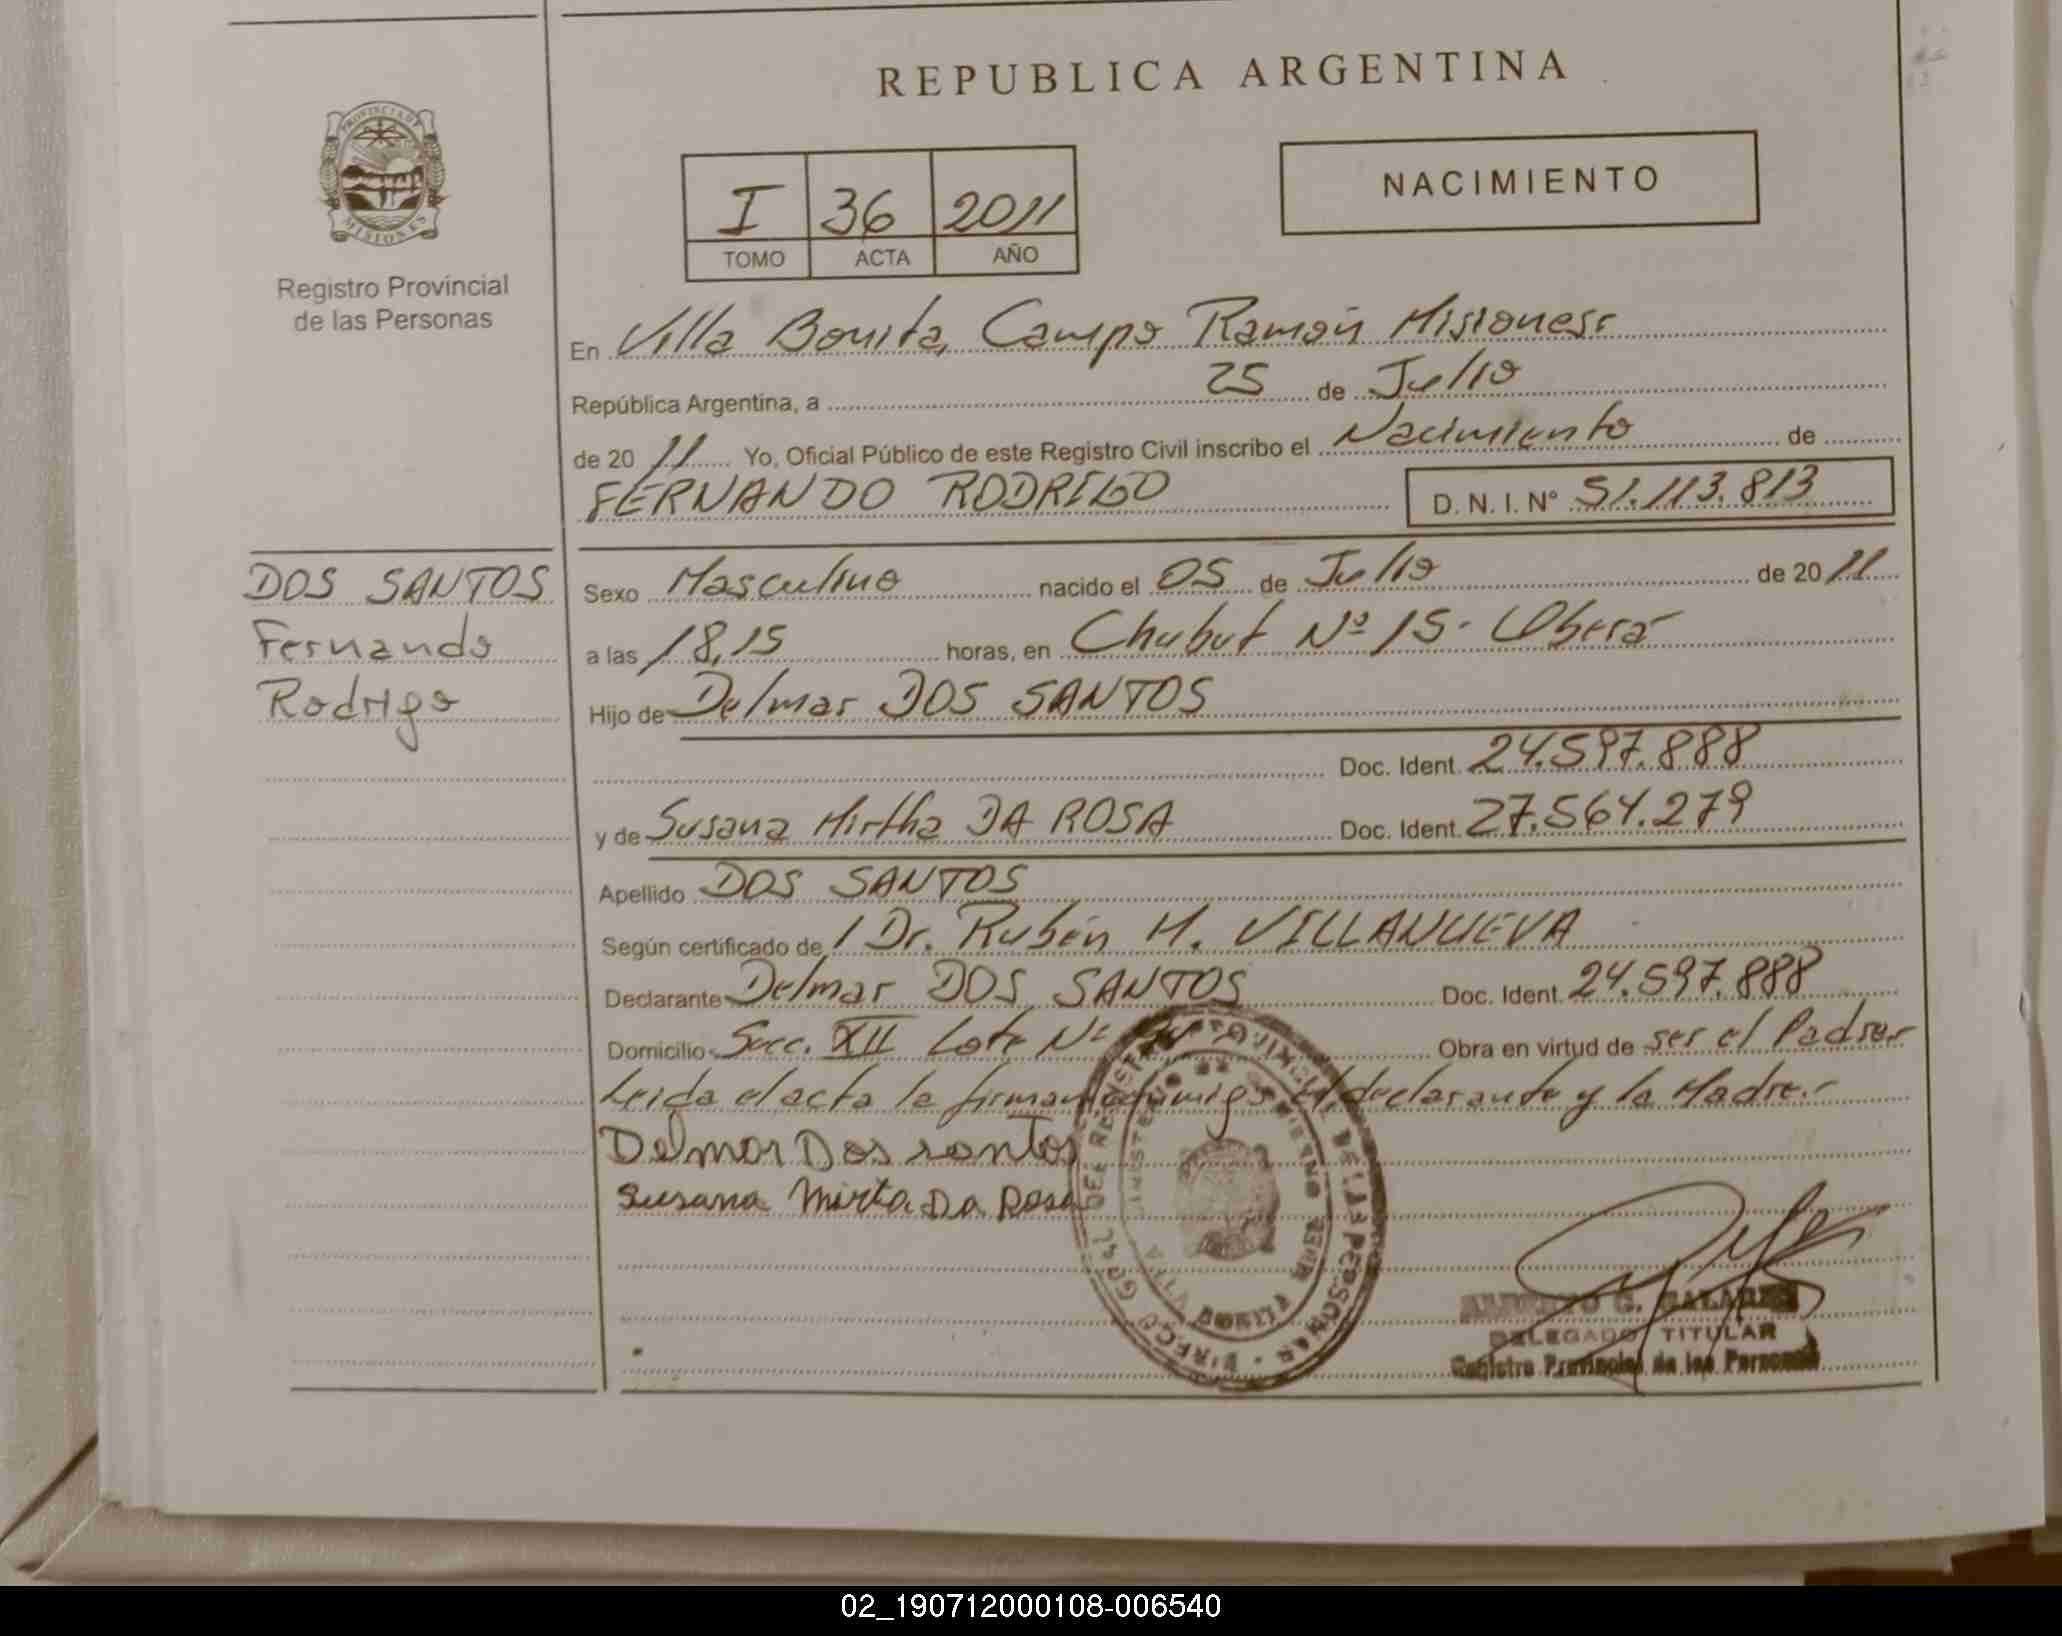 REPUBLICA ARGENTINA
PROVINCIA D
MISIONES
Registro Provincial
de las Personas
I 36 2011
TOMO ACTA AÑO
NACIMIENTO
En Villa Bonita, Campo Ramón Misiones
República Argentina, a 25 de Julio
de 2011 Yo, Oficial Público de este Registro Civil inscribo el Nacimiento de
FERNANDO RODRIGO D. N. I. Nº 51.113.813
DOS SANTOS
Fernando
Rodrigo
Sexo Masculino nacido el 05 de Julio de 2011
a las 18,15 horas, en Chubut Nº 15- Oberá
Hijo de Delmar DOS SANTOS
Doc. Ident. 24.597.888
y de Susana Mirtha DA ROSA Doc. Ident. 27.564.279
Apellido DOS SANTOS
Según certificado de Dr. Rubén H. VILLANUEVA
Declarante Delmar DOS SANTOS Doc. Ident. 24.597.888
Domicilio Secc. XII Lote Nº Obra en virtud de ser el Padre
Leida el acta la firman conmigo el declarante y la Madre
Delmar Dos santos
Susana Mirta Da Rosa
VILLA BONITA
DELEGADO TITULAR
Registro Provincial de las Personas
02_190712000108-006540